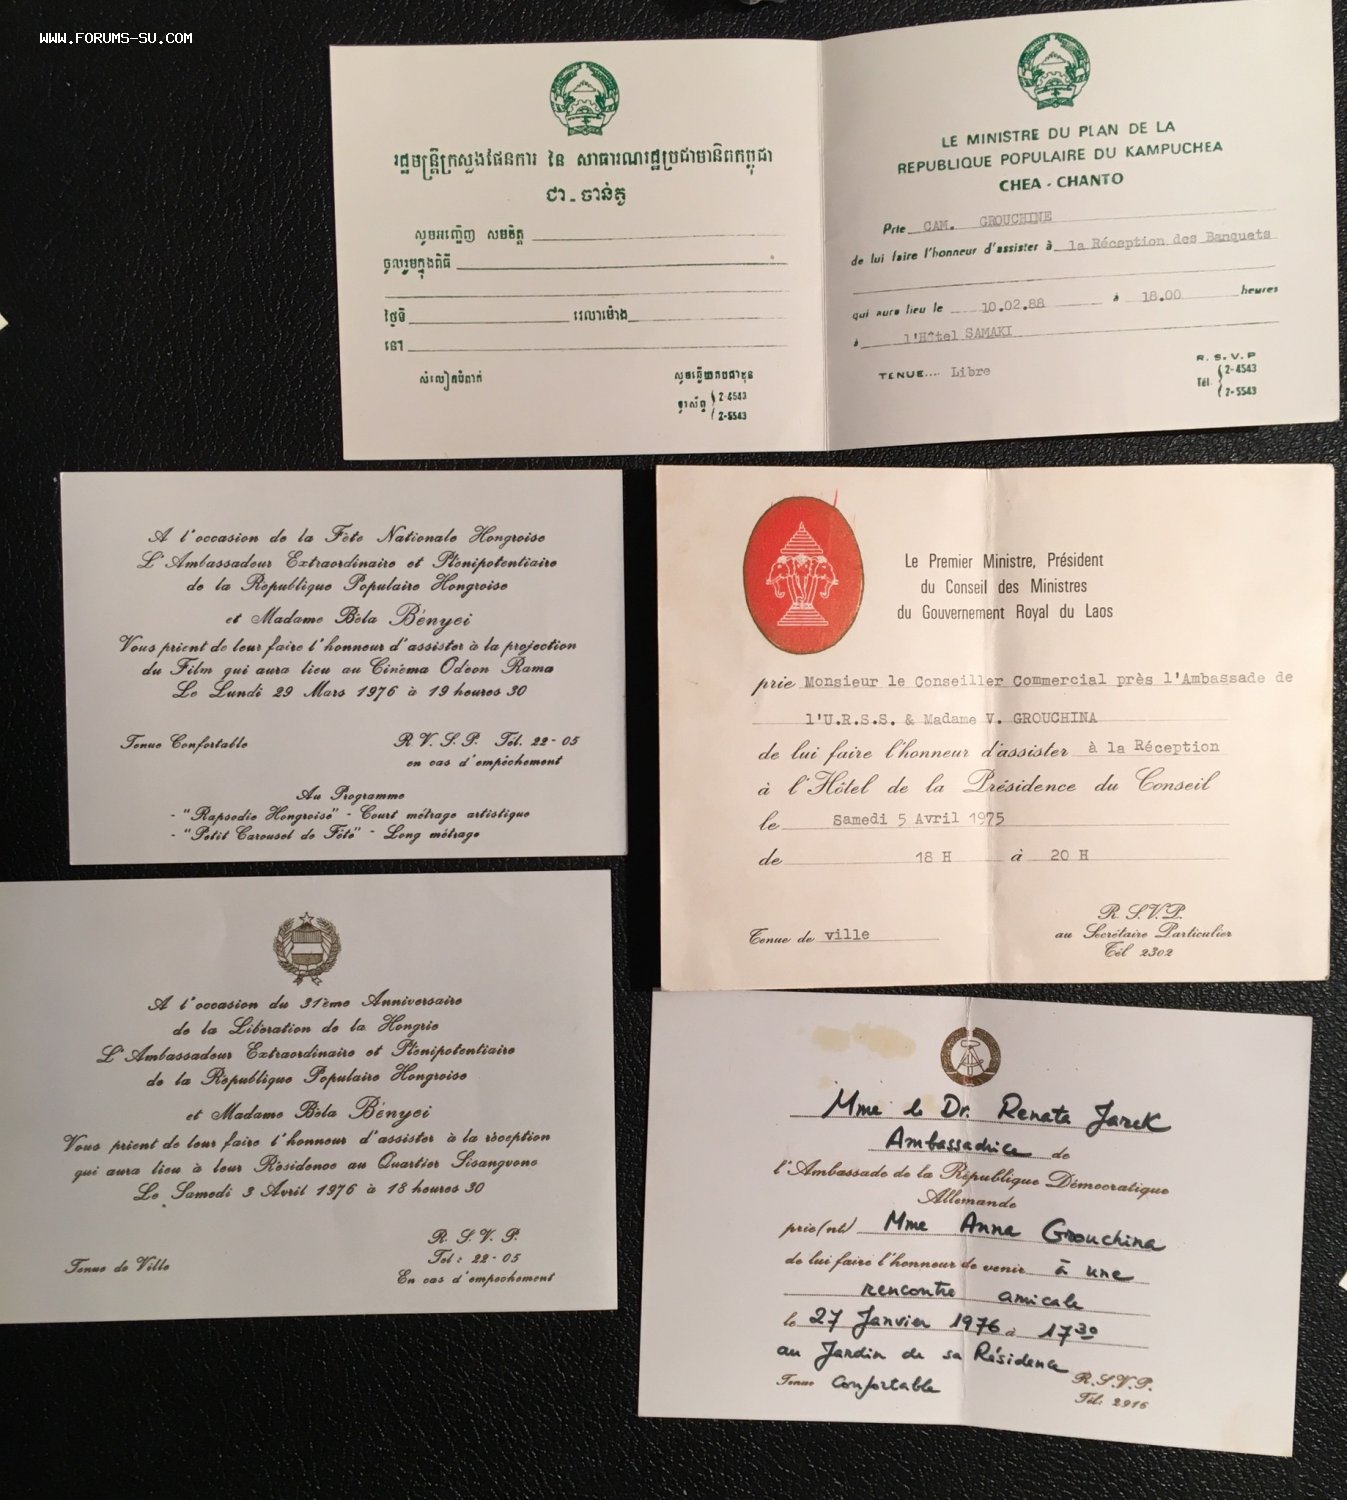 WWW.FORUMS-SU.COM
រដ្ឋមន្ត្រីក្រសួងផែនការ នៃ សាធារណរដ្ឋប្រជាមានិតកម្ពុជា
ជា - ចាន់តូ
សូមអញ្ជើញ សមមិត្ត
ចូលរួមក្នុងពិធី
ថ្ងៃទី វេលាម៉ោង
នៅ
សំលៀកបំពាក់
ទូរស័ព្ទ 2-4543
2-5543
LE MINISTRE DU PLAN DE LA
REPUBLIQUE POPULAIRE DU KAMPUCHEA
CHEA - CHANTO
Prie CAM. GROUCHINE
de lui faire l'honneur d'assister à la Réception des Banquets
qui aura lieu le 10.02.88 à 18.00 heures
à l'Hôtel SAMAKI
TENUE.... Libre
R. S. V. P
Tél. 2-4543
2-5543
A l'occasion de la Fête Nationale Hongroise
L'Ambassadeur Extraordinaire et Plénipotentiaire
de la République Populaire Hongroise
et Madame Béla Bényei
Vous prient de leur faire l'honneur d'assister à la projection
du Film qui aura lieu au Cinéma Odéon Rama
Le Lundi 29 Mars 1976 à 19 heures 30
Tenue Confortable
R. V. S. P. Tél. 22-05
en cas d'empêchement
Au Programme
- "Rapsodie Hongroise" - Court métrage artistique
- "Petit Carousel de Fête" - Long métrage
Le Premier Ministre, Président
du Conseil des Ministres
du Gouvernement Royal du Laos
prie Monsieur le Conseiller Commercial près l'Ambassade de
l'U.R.S.S. & Madame V. GROUCHINA
de lui faire l'honneur d'assister à la Réception
à l'Hôtel de la Présidence du Conseil
le Samedi 5 Avril 1975
de 18 H à 20 H
Tenue de ville
R. S.V.P.
au Secrétaire Particulier
Tél 2302
A l'occasion du 31ème Anniversaire
de la Libération de la Hongrie
L'Ambassadeur Extraordinaire et Plénipotentiaire
de la République Populaire Hongroise
et Madame Béla Bényei
Vous prient de leur faire l'honneur d'assister à la réception
qui aura lieu à leur Résidence au Quartier Sisangvone
Le Samedi 3 Avril 1976 à 18 heures 30
Tenue de Ville
R. S. V. P.
Tél : 22-05
En cas d'empechement
Mme le Dr. Renata Jarck
Ambassadrice de
l'Ambassade de la République Démocratique
Allemande
prie(nt) Mme Anna Grouchina
de lui faire l'honneur de venir à une
rencontre amicale
le 27 Janvier 1976 à 17³⁰
au Jardin de sa Résidence
Tenue confortable
R.S.V.P.
Tél: 2916